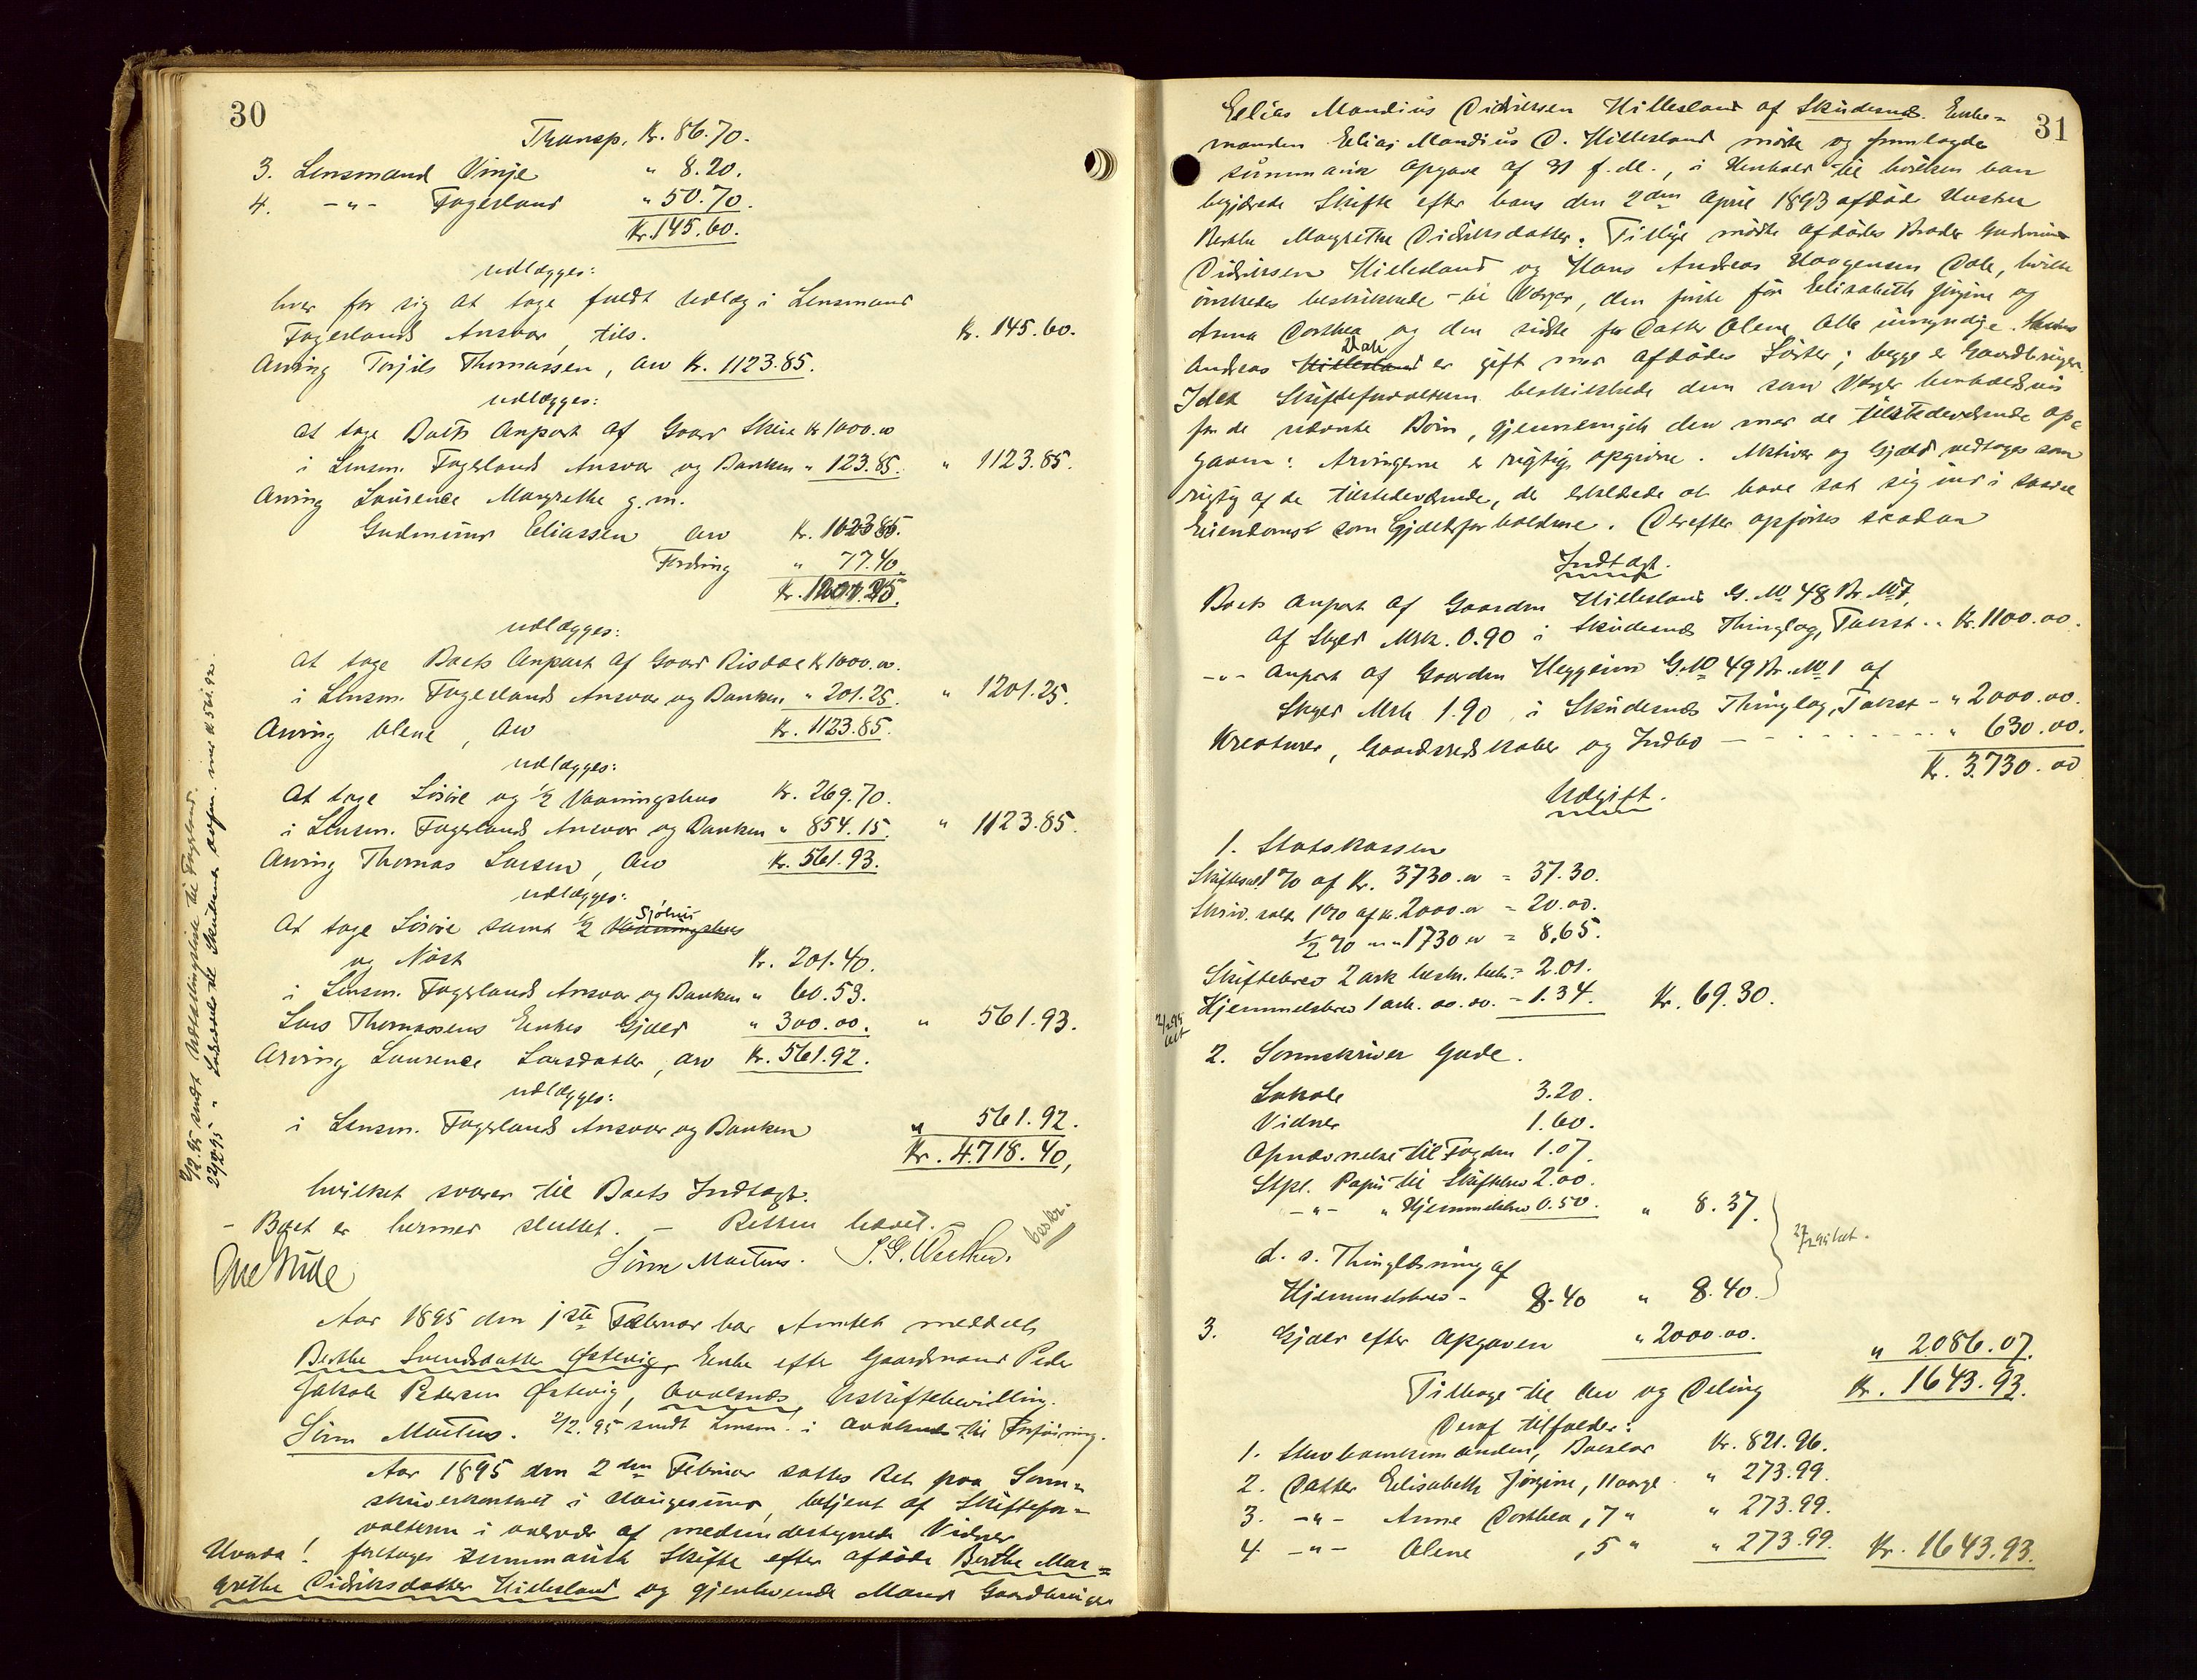 30
Transp. Kr. 86.70.
3. Lensmand Vinje " 8.20.
4. -"- Fagerland " 50.70.
Kr. 145.60.
udlægges:
hver for sig at tage fuldt Udlæg i Lensmand
Fagerlands Ansvar, tils. Kr. 145.60.
Arving Torjils Thomassen, arv Kr. 1123.85.
udlægges:
at tage Boets Anpart af Gaard Skeie Kr 1000.00
i Lensm. Fagerlands Ansvar og Banken " 123.85. " 1123.85.
Arving Laurence Margrethe g.m.
Gudmund Eliassen arv Kr. 1123.85.
Fordring " 77.40.
Kr. 1201.25.
udlægges:
at tage Boets Anpart af Gaard Risdal Kr 1000.00.
i Lensm. Fagerlands Ansvar og Banken " 201.25. " 1201.25.
Arving Olene, arv Kr. 1123.85.
udlægges:
At tage Løsøre og 1/2 Vaaningshus Kr. 269.70.
i Lensm. Fagerlands Ansvar og Banken " 854.15. " 1123.85.
Arving Thomas Larsen, arv Kr. 561.93.
udlægges:
At tage Løsøre samt 1/2 Vaaningshus Sjøhus
og Nøst Kr. 201.40.
i Lensm. Fagerlands Ansvar og Banken " 60.53.
Lars Thomassens Enkes Gjæld " 300.00. " 561.93.
Arving Laurence Larsdatter, arv Kr. 561.92.
udlægges:
i Lensm. Fagerlands Ansvar og Banken " 561.92.
Kr. 4.718.40,
hvilket svarer til Boets Indtægt.
- Boet er hermed sluttet. - Retten hævet. -
beskr.
Søren Martens.
2/2.95 sendt Udlodningsliste til Fagerland.
Aar 1895 den 1ste Februar har Amtet meddelt
Berthe Svendsdatter Østevig, Enke efter Gaardmand Peder
Jakob Pedersen Østevig, Avalsnæs, Uskiftebevilling.
Søren Martens. 2/2.95 sendt Lensm. i Avalsnæs til Forføining.
Aar 1895 den 2den Februar sattes Ret paa Soren-
skriverkontoret i Haugesund, betjent af Skiftefor-
valteren i overvær af medundertegnede Vidner
Hvorda! foretoges summarisk Skifte efter afdøde Berthe Mar-
grethe Didriksdatter Hillesland og gjenlevende Mand Gaardbruger
31
Elias Mandius Didriksen Hillesland af Skudesnæs. Enke-
manden Elias Mandius D. Hillesland mødte og fremlagde
summarisk Opgave af 31 f.M., i Henhold til hvilken han
begjærede Skifte efter hans den 2den April 1893 afdøde Hustru
Berthe Margrethe Didriksdatter. Tillige mødte afdødes Broder Gudmund
Didriksen Hillesland og Hans Andreas Haagensen Dale, hvilke
ønskedes beskikkede til Værger, den første for Elisabeth Jørgine og
Anna Dorthea og den sidste for Datter Olene, Alle umyndige. Hans
Andreas Hillesland Dale er gift med afdødes Søster; begge er Gaardbrugere.
Idet Skifteforvalteren beskikkede dem som Værger henholdsvis
for de nævnte Børn, gjennemgik den med de tilstedeværende Op-
gaven: Arvingerne er rigtig opgivne. Aktiver og Gjæld vedtoges som
rigtig af de tilstedeværende, de erklærede at have sat sig ind i saavel
Eiendoms som Gjældsforholdene. Derefter opførtes saadan
Indtægt.
Boets anpart af Gaarden Hillesland G. No 48 Br. No 7,
af Skyld Mrk. 0.90 i Skudesnæs Thinglag, Takst .. Kr. 1100.00.
-"- Anpart af Gaarden Heggeim G.No 49 Br. No 1 af
Skyld Mrk 1.90 i Skudesnæs Thinglag, Takst - " 2000.00.
Kreaturer, Gaardsredskaber og Indbo - - - - " 630.00.
Kr. 3.730.00
Udgift.
1. Statskassen
Skifteafl. 1% af Kr. 3730.00 = 37.30.
Skriv. salær 1% af Kr. 2000.00 = 20.00.
1/2 % " " 1730 00 = 8.65.
Skiftebrev 2 ark beskr. beh. = 2.01.
Hjemmelsbrev 1 ark. do. do. - 1.34. Kr. 69.30.
2. Sorenskriver Gude.
Lokale 3.20.
Vidner 1.60.
Opnævnelse til Fogden 1.07.
Stpl. Papir til Skiftebrev 2.00.
-"- " Hjemmelsbrev 0.50. " 8.37.
d. s. Thinglæsning af
Hjemmelsbrev - 8.40 " 8.40.
3. Gjæld efter Opgaven " 2000.00. " 2086.07.
Tilbage til Arv og Deling Kr. 1643.93.
Deraf tilfalder:
1. Sterbboenkemanden, Boeslod Kr. 821.96.
2. Datter Elisabeth Jørgine, 11 aargl. " 273.99.
3. -"- Anne Dorthea, 7 " " 273.99.
4 -"- Olene, 5 " " 273.99. Kr. 1643.93.